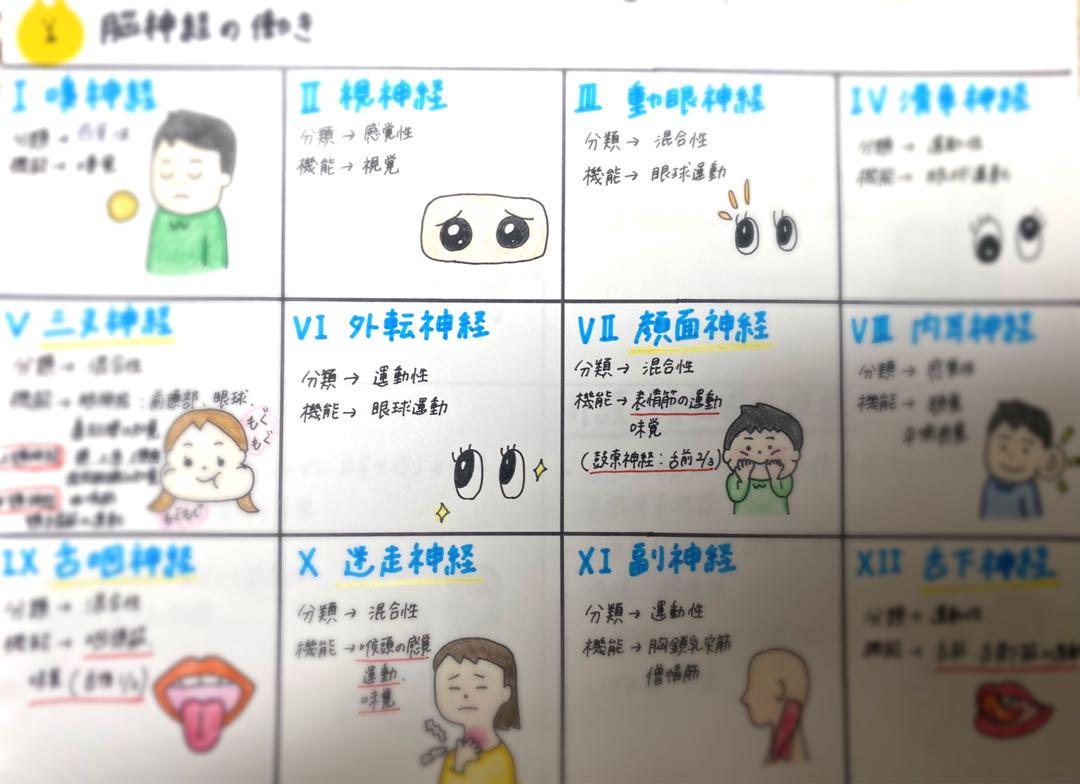 脳神経の働き
I 嗅神経
分類→感覚性
機能→嗅覚
II 視神経
分類→感覚性
機能→視覚
III 動眼神経
分類→混合性
機能→眼球運動
IV 滑車神経
分類→運動性
機能→眼球運動
V 三叉神経
分類→混合性
機能→眼神経:前頭部、眼球、
もぐ
もぐ
もぐもぐ
VI 外転神経
分類→運動性
機能→眼球運動
VII 顔面神経
分類→混合性
機能→表情筋の運動
味覚
(鼓索神経:舌前2/3)
VIII 内耳神経
分類→感覚性
機能→聴覚
平衡感覚
IX 舌咽神経
分類→混合性
機能→咽頭筋
味覚
X 迷走神経
分類→混合性
機能→喉頭の感覚
運動、
味覚
XI 副神経
分類→運動性
機能→胸鎖乳突筋
僧帽筋
XII 舌下神経
分類→運動性
機能→